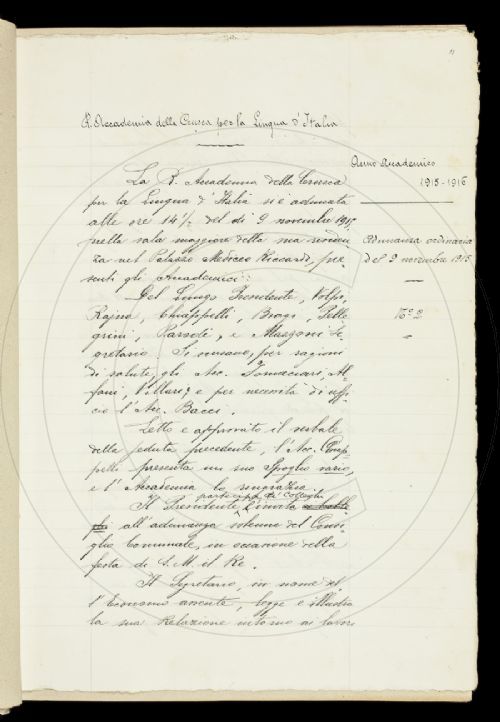 R. Accademia della Crusca per la Lingua d'Italia
Anno Accademico
1915-1916
La R. Accademia della Crusca
per la Lingua d'Italia si è adunata
alle ore 14½ del dì 9 novembre 1915,
nella sala maggiore della sua residen
za nel Palazzo Mediceo Riccardi, pre
senti gli Accademici:
Adunanza ordinaria
del 9 novembre 1915
N.º 2
Del Lungo Presidente, Volpi,
Rajna, Chiappelli, Biagi, Pelle
grini, Parodi, e Mazzoni Se
gretario. Si scusano, per ragioni
di salute, gli Acc. Tommasini, Al
fani, Villari; e per necessità di uffi
cio l'Acc. Bacci.
Letto e approvato il verbale
della seduta precedente, l'Acc. Chiap
pelli presenta un suo Spoglio vario,
e l'Accademia lo ringrazia.
Il Presidente partecipa ai Colleghi l'invito
all'adunanza solenne del Consi
glio Comunale, in occasione della
festa di S. M. il Re.
Il Segretario, in nome del
l'Economo assente, legge e illustra
la sua Relazione intorno ai lavori